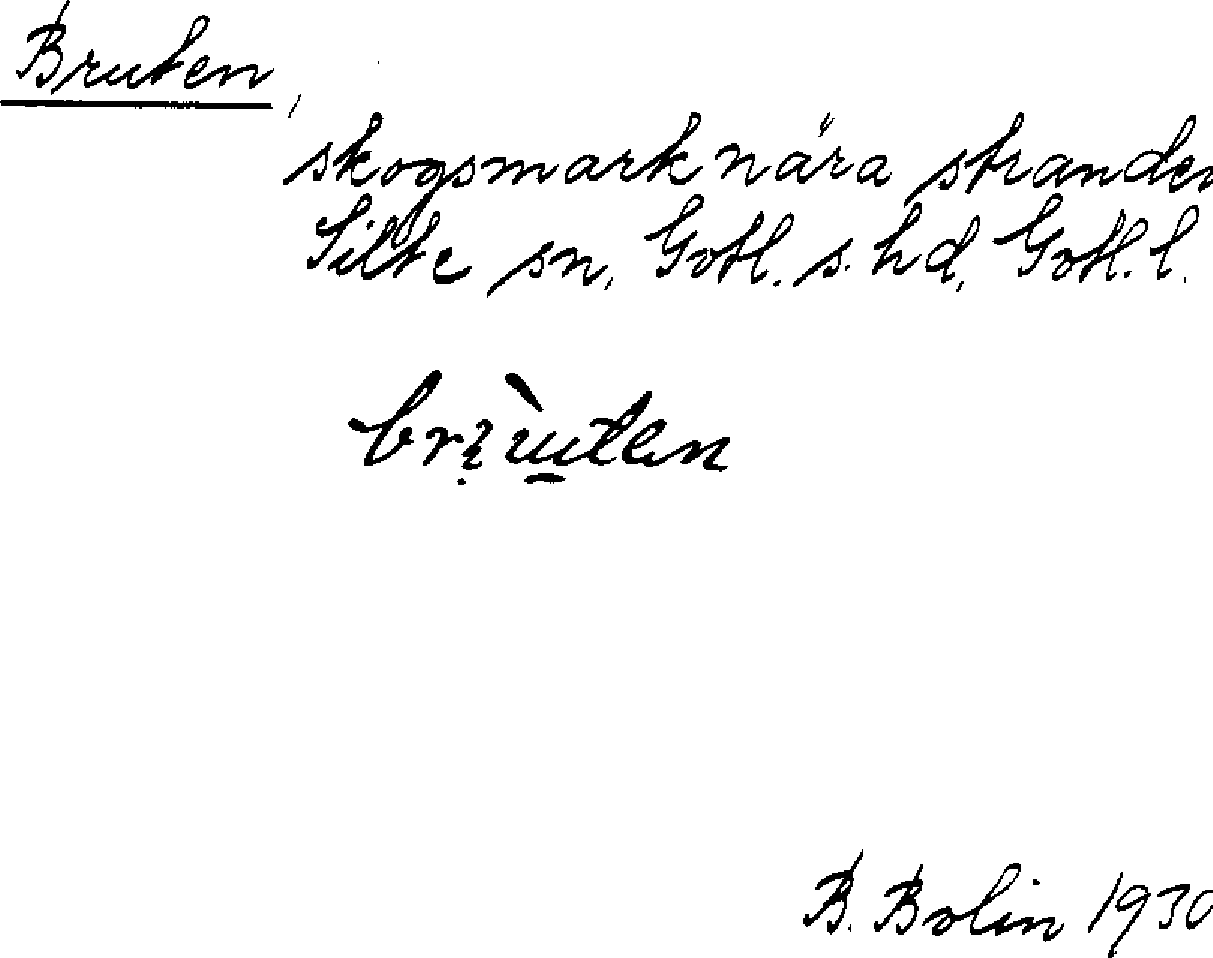 Bruten,
skogsmark nära stranden
Silte sn, Gotl. s. hd, Gotl. l.
B. Bolin 1930